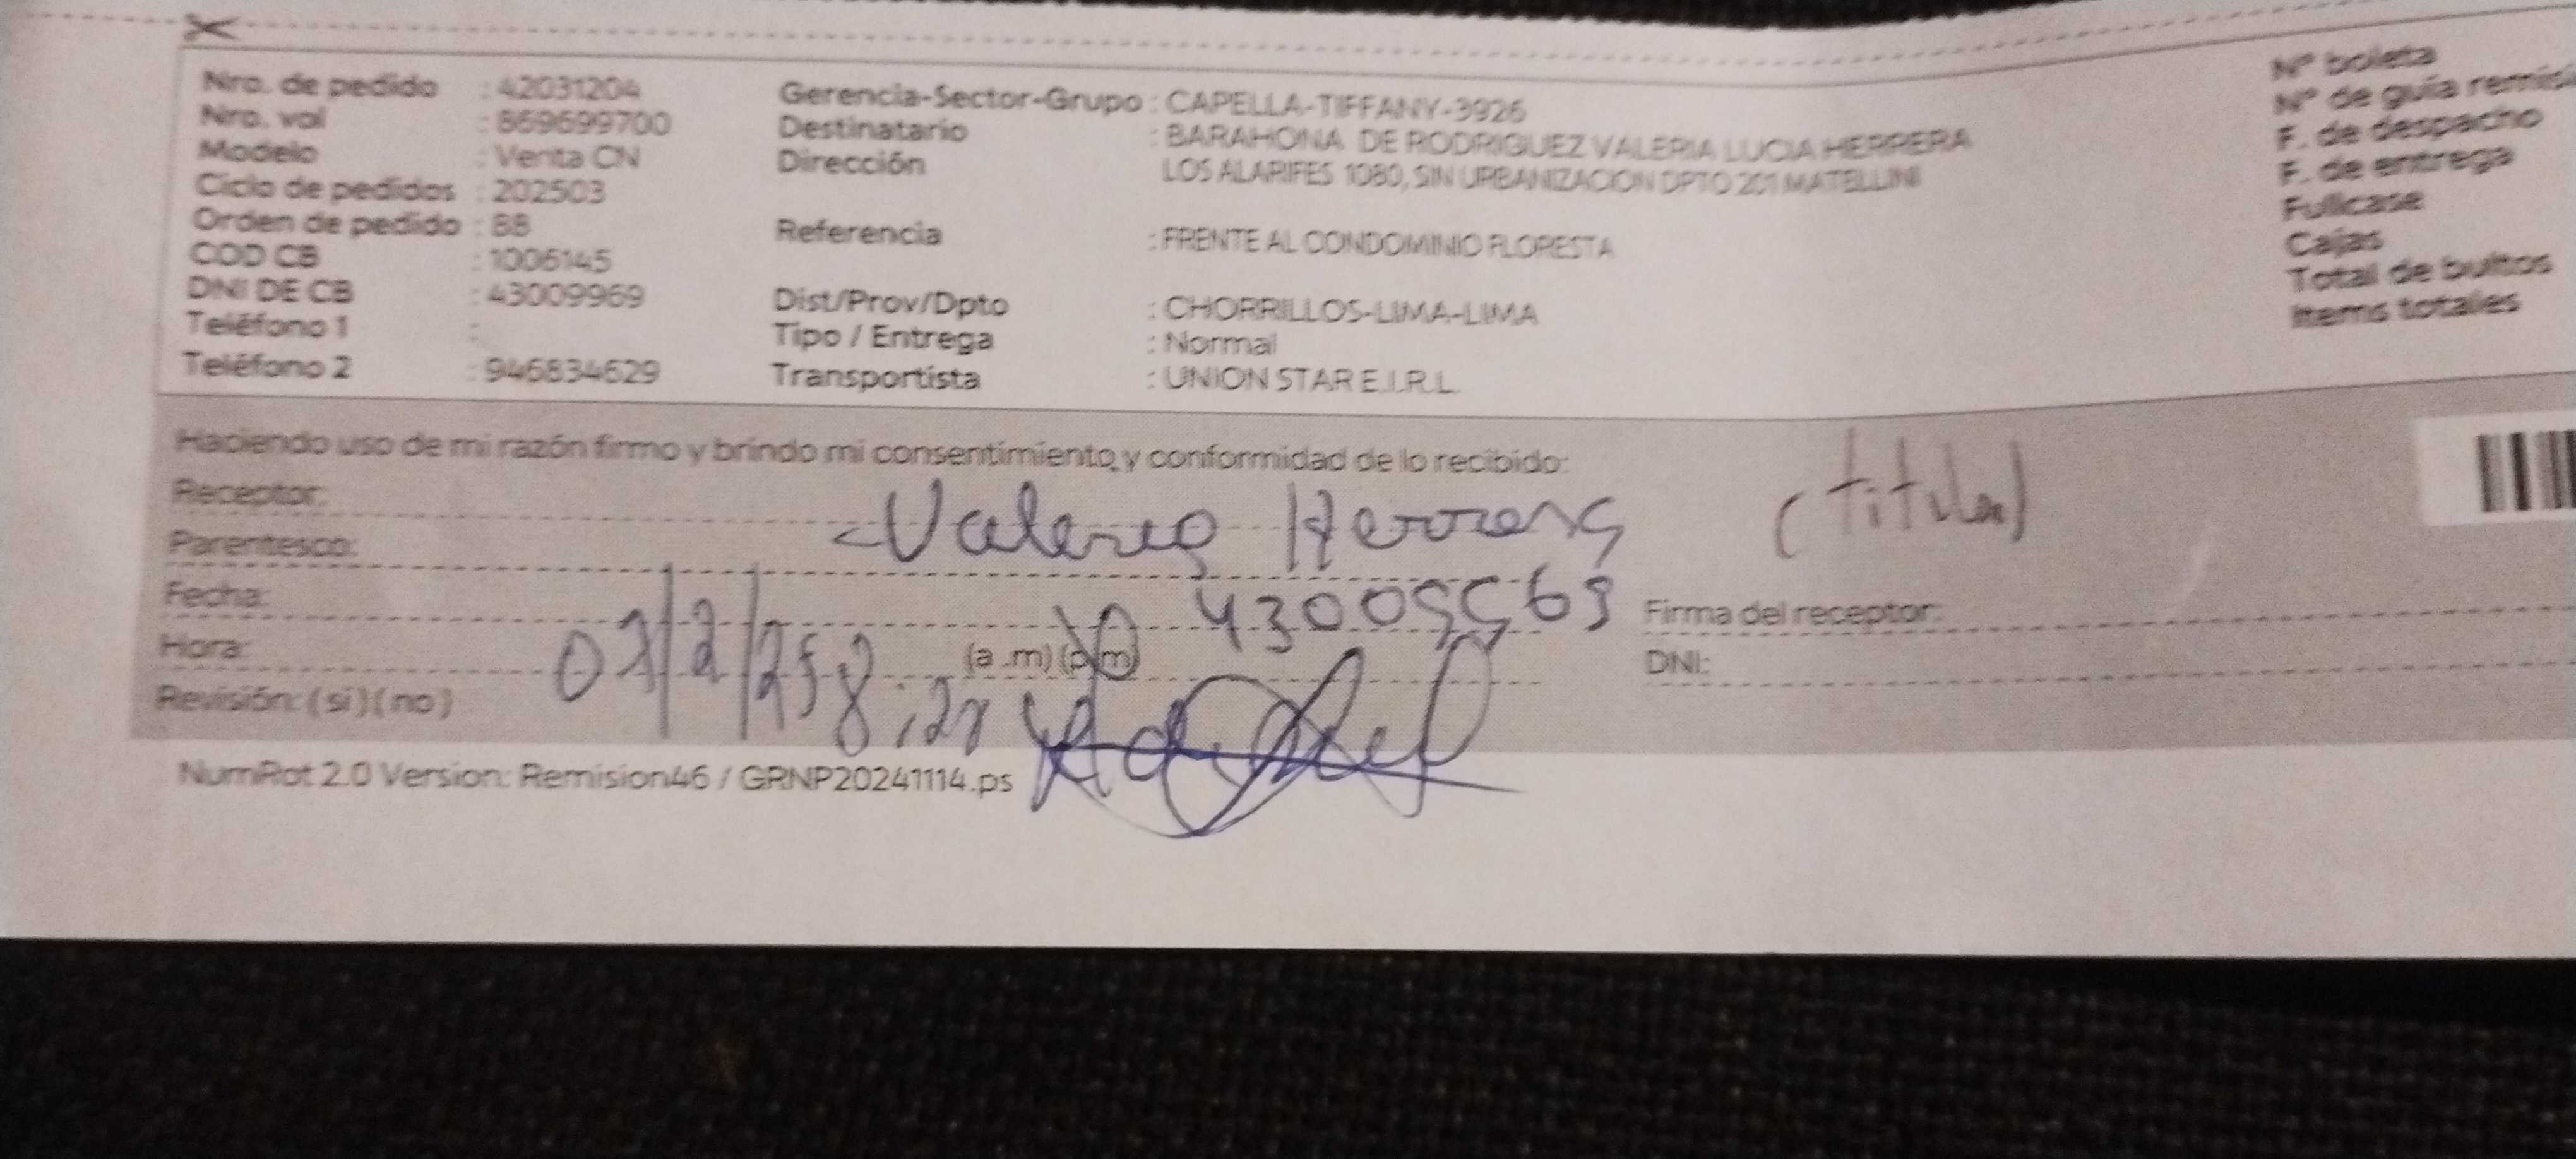 Nro. de pedido : 42031204
Nro. val : 869699700
Modelo : Venta CN
Ciclo de pedidos : 202503
Orden de pedido : 88
COD CB : 1006145
DNI DE CB : 43009969
Teléfono 1 :
Teléfono 2 : 946834629
Gerencia-Sector-Grupo : CAPELLA-TIFFANY-3926
Destinatario : BARAHONA DE RODRIGUEZ VALERIA LUCIA HERRERA
Dirección LOS ALARIFES 1080, SIN URBANIZACION DPTO 201 MATELLINI
Referencia : FRENTE AL CONDOMINIO FLORESTA
Dist/Prov/Dpto : CHORRILLOS-LIMA-LIMA
Tipo / Entrega : Normal
Transportista : UNION STAR E.I.R.L.
Nº boleta
Nº de guía
F. de despacho
F. de entrega
Fullcase
Cajas
Total de bultos
Items totales
Haciendo uso de mi razón firmo y brindo mi consentimiento y conformidad de lo recibido:
Receptor: Valeria Herrera (titular)
Parentesco:
Fecha: 43009969
Hora: 07/2/25 8:21 (a .m) (p.m)
Firma del receptor:
DNI:
Revisión: (si) (no)
NumRot 2.0 Version: Remision46 / GRNP20241114.ps